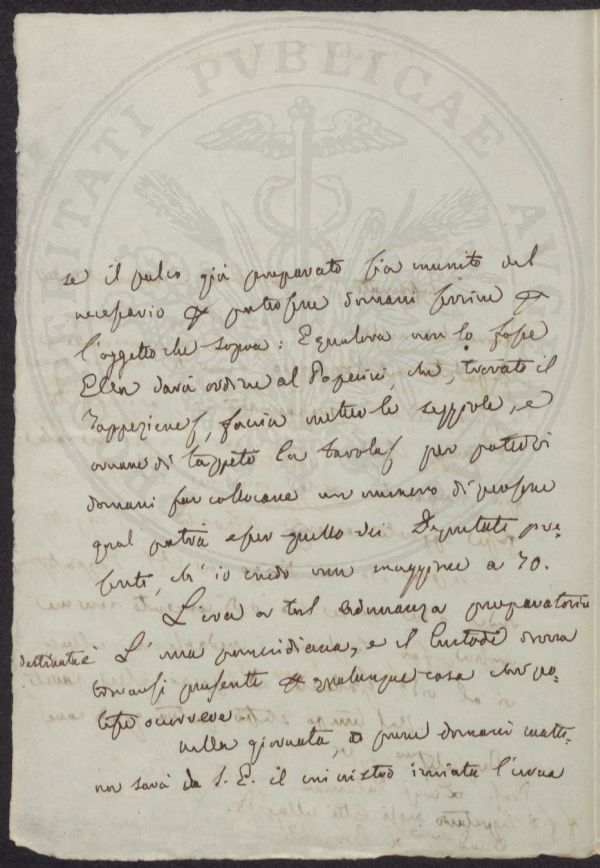 PERITATI PVBLICAE AVGE
se il palco già preparato sia munito del
necessario & potesse domani servire &
l'oggetto che sopra: E qualora non lo fosse
Ella darà ordine al Paperini, che, trovato il
Tappezziere, faccia mettere le seggiole, e
ornare di tappeto la tavola per potervi
domani far collocare un numero di persone
qual potrà esser quello dei Deputati pre-
senti, ch'io credo non maggiore a 70.
L'ora a tal adunanza preparatoria
destinata è L'una pomeridiana, e il Custode dovrà
trovarsi presente & qualunque cosa che po-
tesse occorrere.
Nella giornata, o pure domani matti-
na sarà da S. E. il ministro inviata l'urna